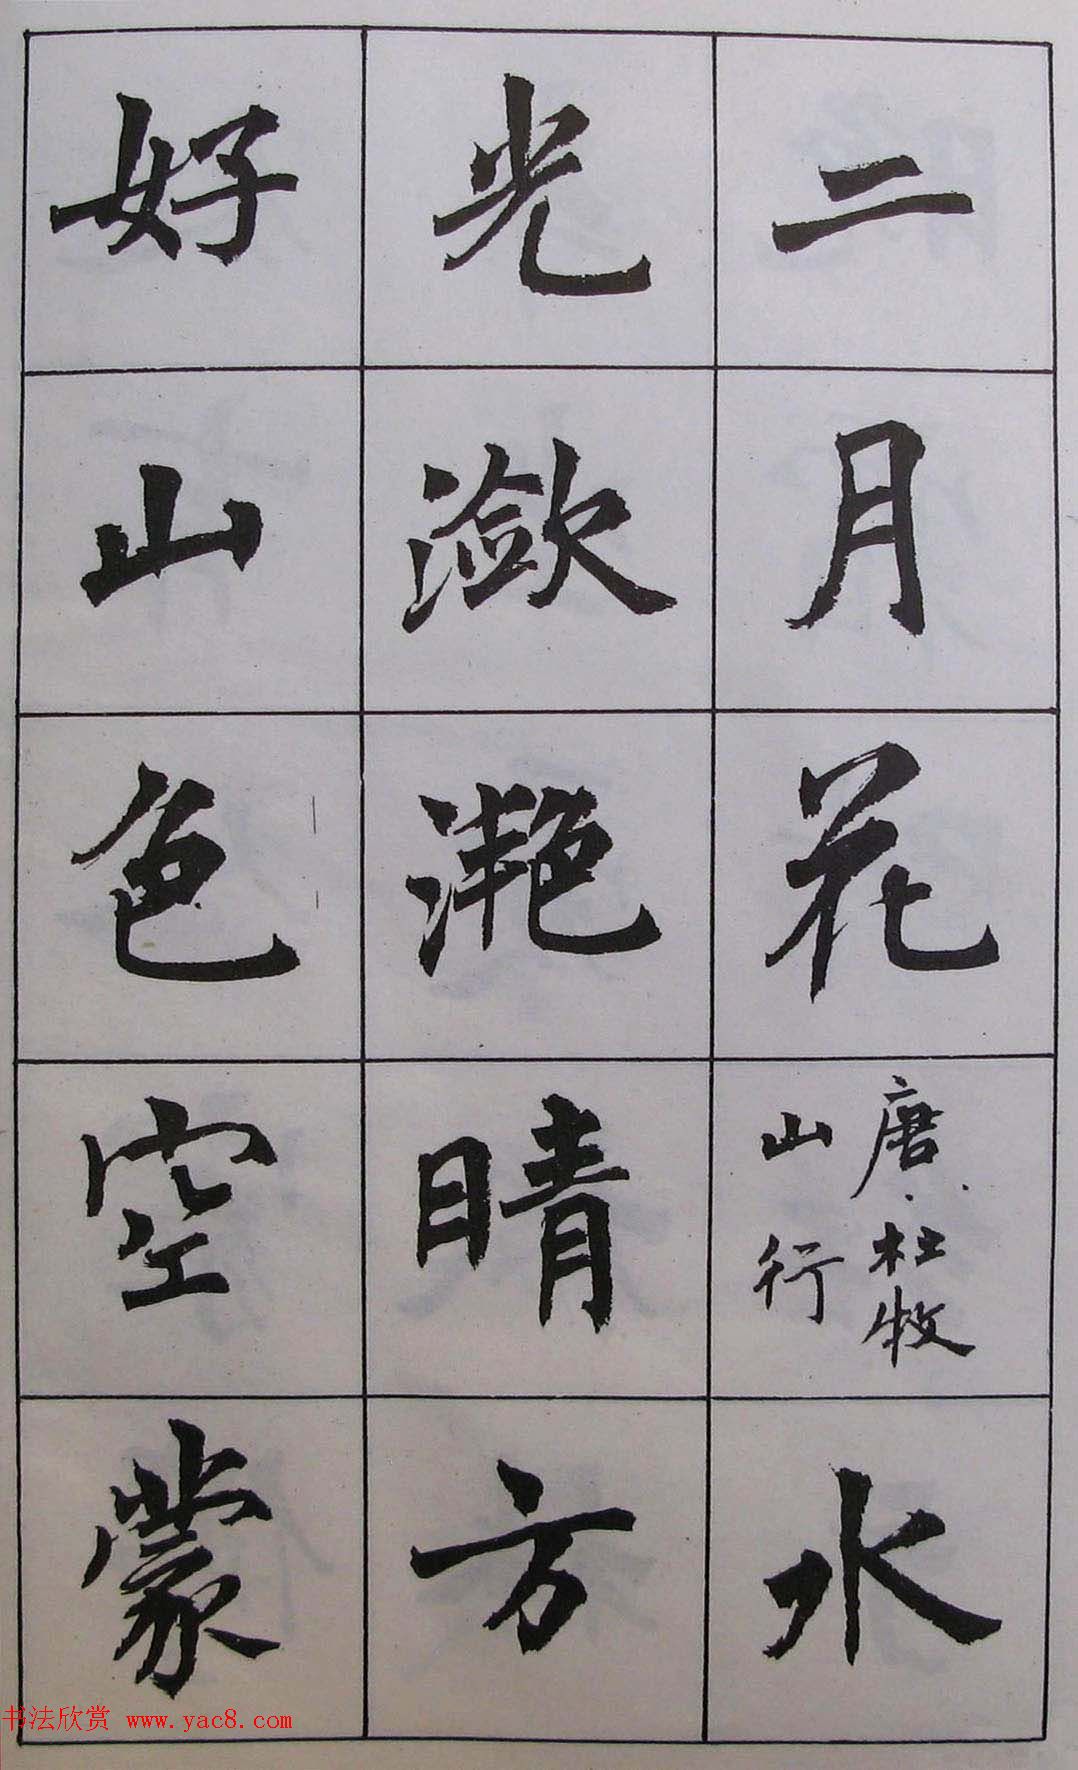 二月花
唐·杜牧
山行
水
光潋滟晴方
好山色空蒙
书法欣赏 www.yac8.com